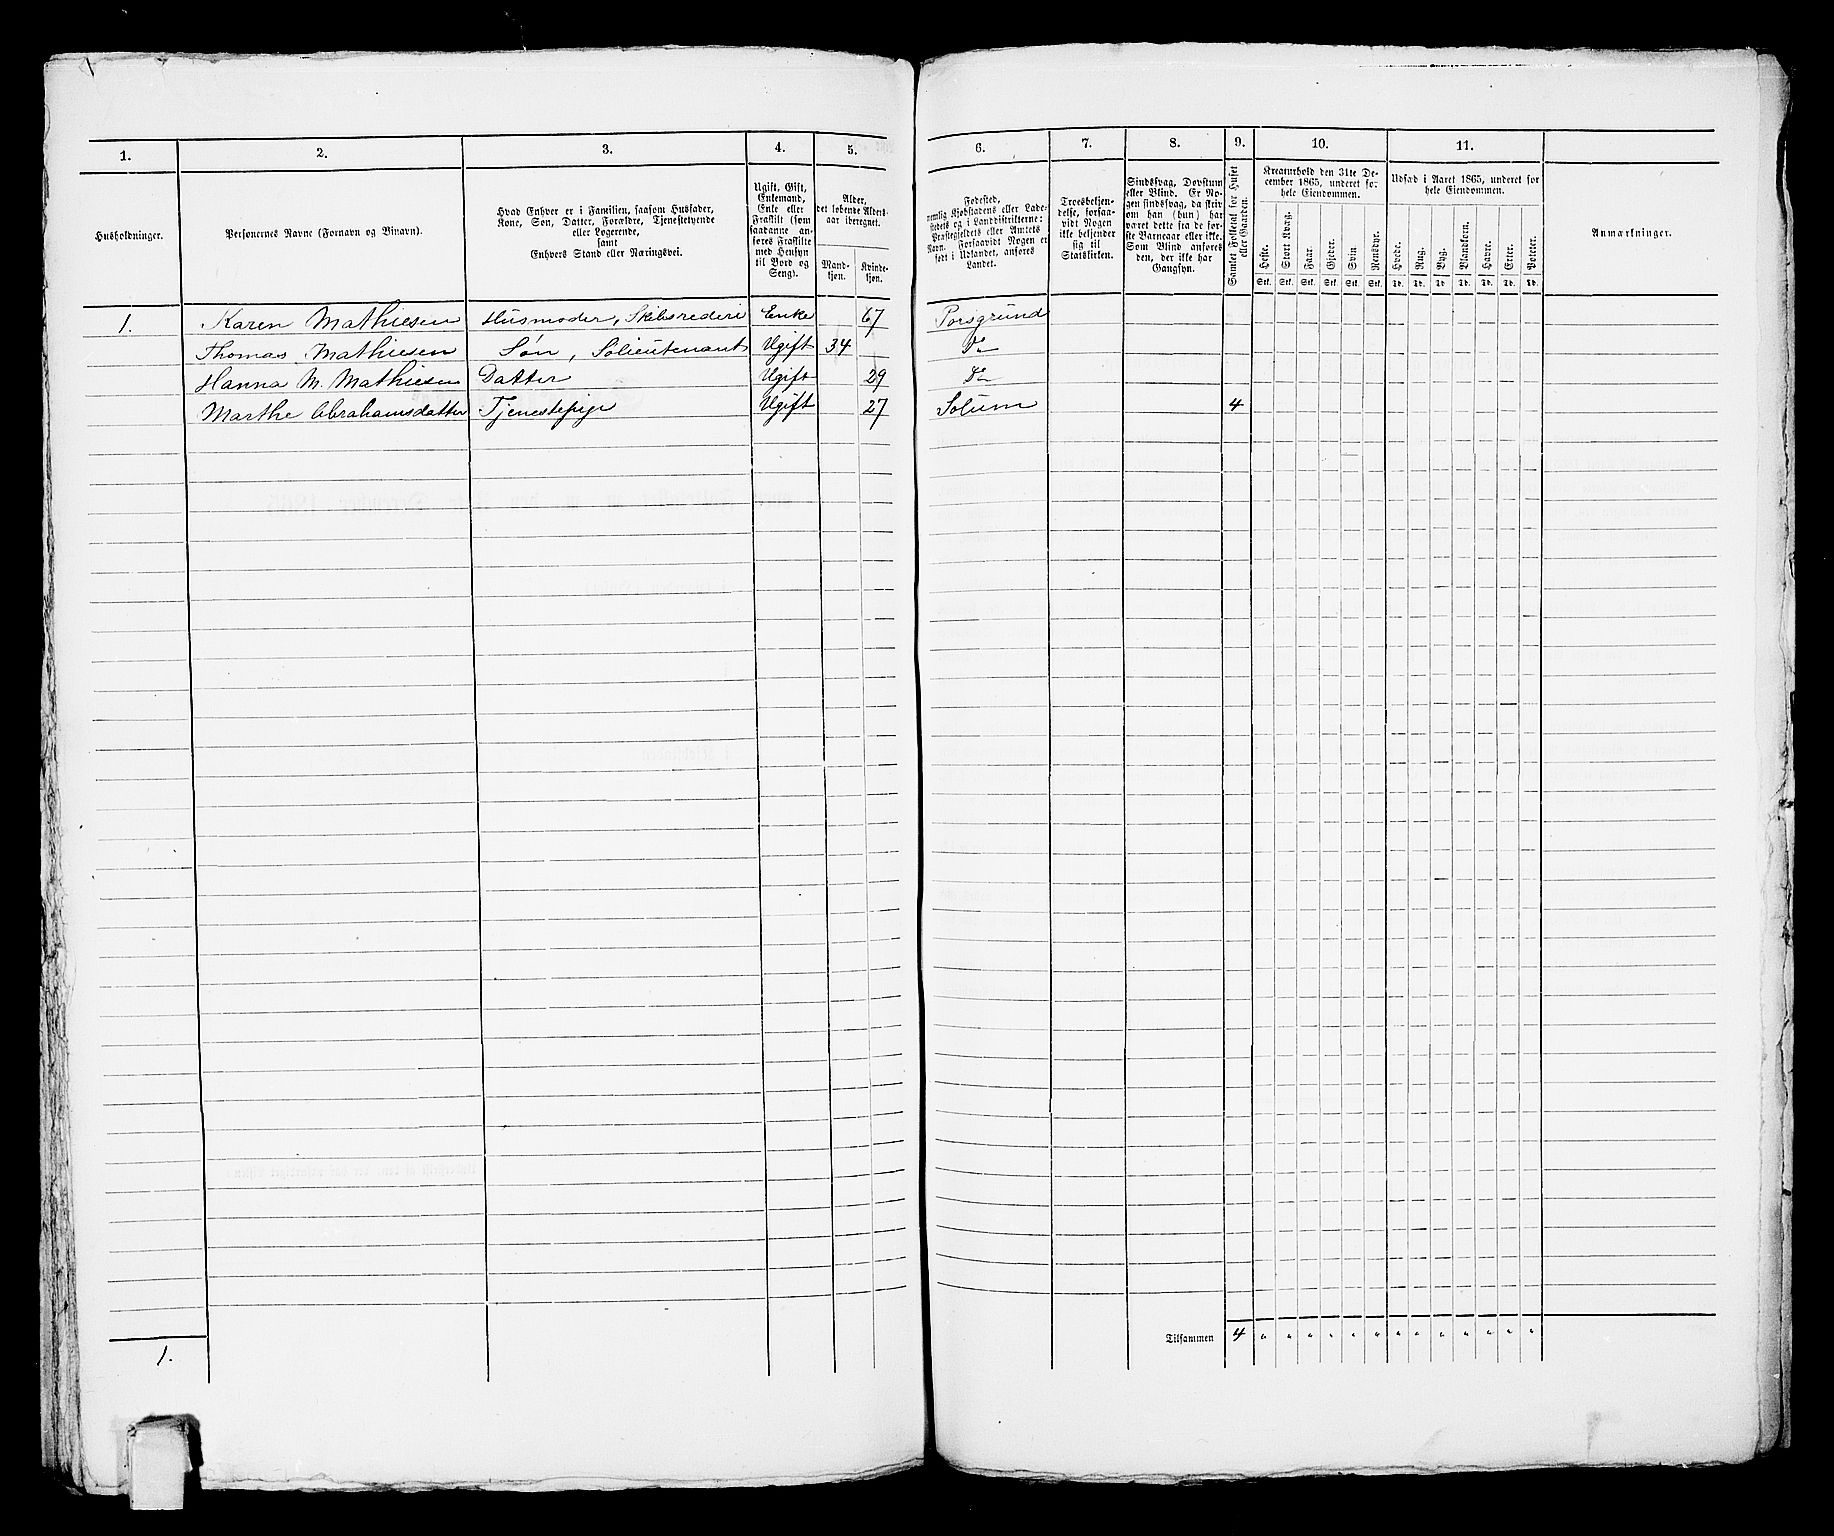 1. 2. 3. 4. 5. 6. 7. 8. 9. 10. 11.
Husholdninger.
Personernes Navne (Fornavn og Binavn).
Hvad Enhver er i Familien, saasom Husfader,
Kone, Søn, Datter, Forældre, Tjenestetyende
eller Logerende,
samt
Enhvers Stand eller Næringsvei.
Ugift, Gift,
Enkemand,
Enke eller
Fraskilt (som
saadanne an-
føres Fraskilte
med Hensyn
til Bord og
Seng).
Alder,
det løbende Alders-
aar iberegnet.
Mand-
kjøn.
Kvinde-
kjøn.
Fødested,
nemlig Kjøbstadens eller Lade-
stedets og i Landdistrikterne:
Præstegjeldets eller Amtets
Navn. Forsaavidt Nogen er
født i Udlandet, anføres
Landet.
Troesbekjen-
delse, forsaa-
vidt Nogen
ikke bekjender
sig til
Statskirken.
Sindssvag, Døvstum
eller Blind. Er No-
gen sindssvag, da skriv
om han (hun) har
været dette fra de før-
ste Barneaar eller ikke.
Som Blind anføres
den, der ikke har
Gangsyn.
Samlet Folketal for Huset
eller Gaarden.
Kreaturhold den 31te De-
cember 1865, underet for
hele Eiendommen.
Heste. Stort Kvæg. Faar. Gjeder. Svin. Rensdyr.
Stk. Stk. Stk. Stk. Stk. Stk.
Udsæd i Aaret 1865, underet for
hele Eiendommen.
Hvede. Rug. Byg. Blandkorn. Havre. Erter. Poteter.
Td. Td. Td. Td. Td. Td. Td.
Anmærkninger.
1. Karen Mathiesen Husmoder, Skibsrederi Enke 67 Porsgrund
Thomas Mathiesen Søn, Sølieutenant Ugift 34 Do
Hanna M. Mathiesen Datter Ugift 29 Do
Marthe Abrahamsdatter Tjenestepige Ugift 27 Solum 4
Tilsammen 4 " " " " " " " " " " " " "
1.